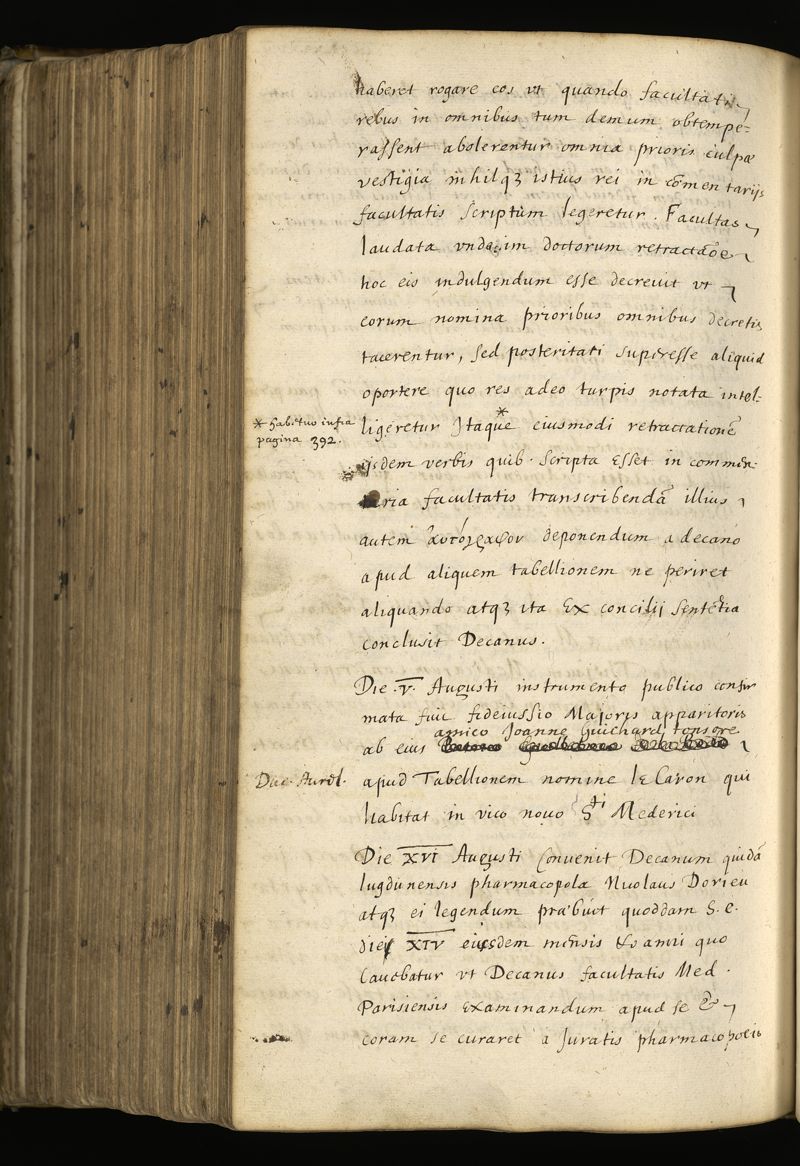 haberet rogare eos vt quando facultati
rebus in omnibus tum demum obtempe=
rassent abolerentur omnia prioris culpæ
vestigia nihilqꝫ istius rei in cõmentarijs
facultatis scriptũm legeretur. Facultas
laudata vndecim doctorum retractaõe
hoc eis indulgendum esse decreuit vt
eorum nomina prioribus omnibus decretis
tacerentur, sed posteritati superesse aliquid
oportere quo res adeo turpis notata intel-
* habetur infra
pagina 392.
ligeretur Itaque * eiusmodi retractationẽ
ijsdem verbis quib. scripta esset in commen-
taria facultatis transcribendã illius
autem ἀυτόγραφον deponendum a decano
apud aliquem tabellionem ne periret
aliquando atqꝫ ita Ex concilij sententia
conclusit Decanus.
Die .v. Augusti instrumento publico confir
mata fuit fideiussio Majoris apparitoris
amico Joanne Guichard tonsore
ab eius
apud Tabellionem nomine le Caron qui
habitat in vico nouo Sti Mederici
Die XVI Augusti Conuenit Decanum quidã
lugdunensis pharmacopola Nicolaus Dorieu
atqꝫ ei legendum præbuit quoddam S. C.
diei XIV eiusdem mensis & anni quo
Cauebatur vt Decanus facultatis Med.
Parisiensis Examinandum apud se &
coram se curaret a Juratis pharmacopoeis